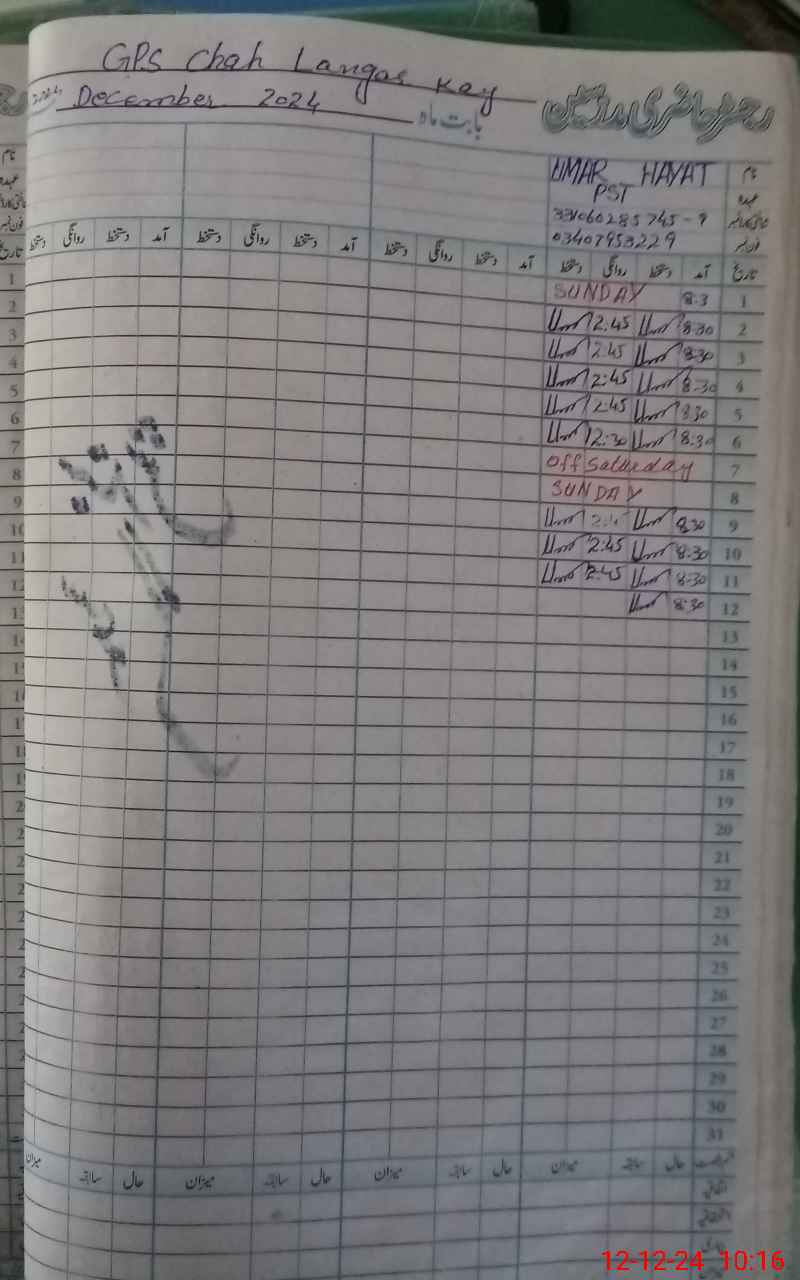 GPS Chah Langar Kay
رجسٹر حاضری مدرسین
December 2024
بابت ماہ
UMAR HAYAT نام
PST عہدہ
شناختی کارڈ نمبر
03407953229 فون نمبر
تاریخ آمد دستخط روانگی دستخط آمد دستخط روانگی دستخط آمد دستخط روانگی دستخط آمد دستخط روانگی دستخط
SUNDAY 8.3 1
2:45 8:30 2
2:45 8:30 3
2:45 8:30 4
2:45 8:30 5
12:30 8:30 6
off saturday 7
SUNDAY 8
8:30 9
2:45 8:30 10
2:45 8:30 11
8:30 12
13
14
15
16
17
18
19
20
21
22
23
24
25
26
27
28
29
30
31
حال سابقہ میزان حال سابقہ میزان حال سابقہ میزان حال سابقہ میزان
اتفاقیہ
12-12-24 10:16